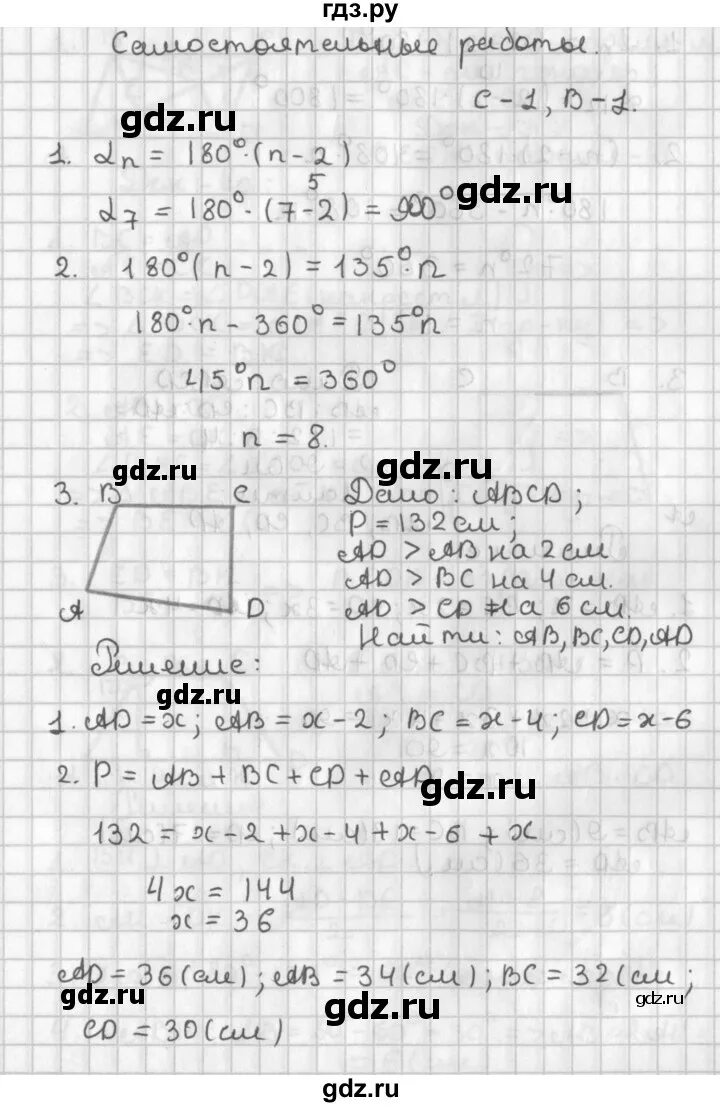 гдз.ру
Самостоятельные работы.
С-1, В-1.
gdz.ru
1. αn = 180°·(n-2)
gdz.ru
5
α7 = 180°·(7-2) = 900°
2. 180°(n-2) = 135°·n
180°·n - 360° = 135°n
45°n = 360°
n = 8.
gdz.ru
gdz.ru
3. B C
Дано: ABCD;
P = 132 см;
AD > AB на 2 см
AD > BC на 4 см.
A D
AD > CD на 6 см.
Найти: AB, BC, CD, AD
Решение:
gdz.ru
1. AD = x; AB = x-2; BC = x-4; CD = x-6
2. P = AB + BC + CD + AD
gdz.ru
132 = x-2+x-4+x-6+x
4x = 144
x = 36
gdz.ru
AD = 36(см); AB = 34(см); BC = 32(см;
gdz.ru
gdz.ru
CD = 30(см)
gdz.ru